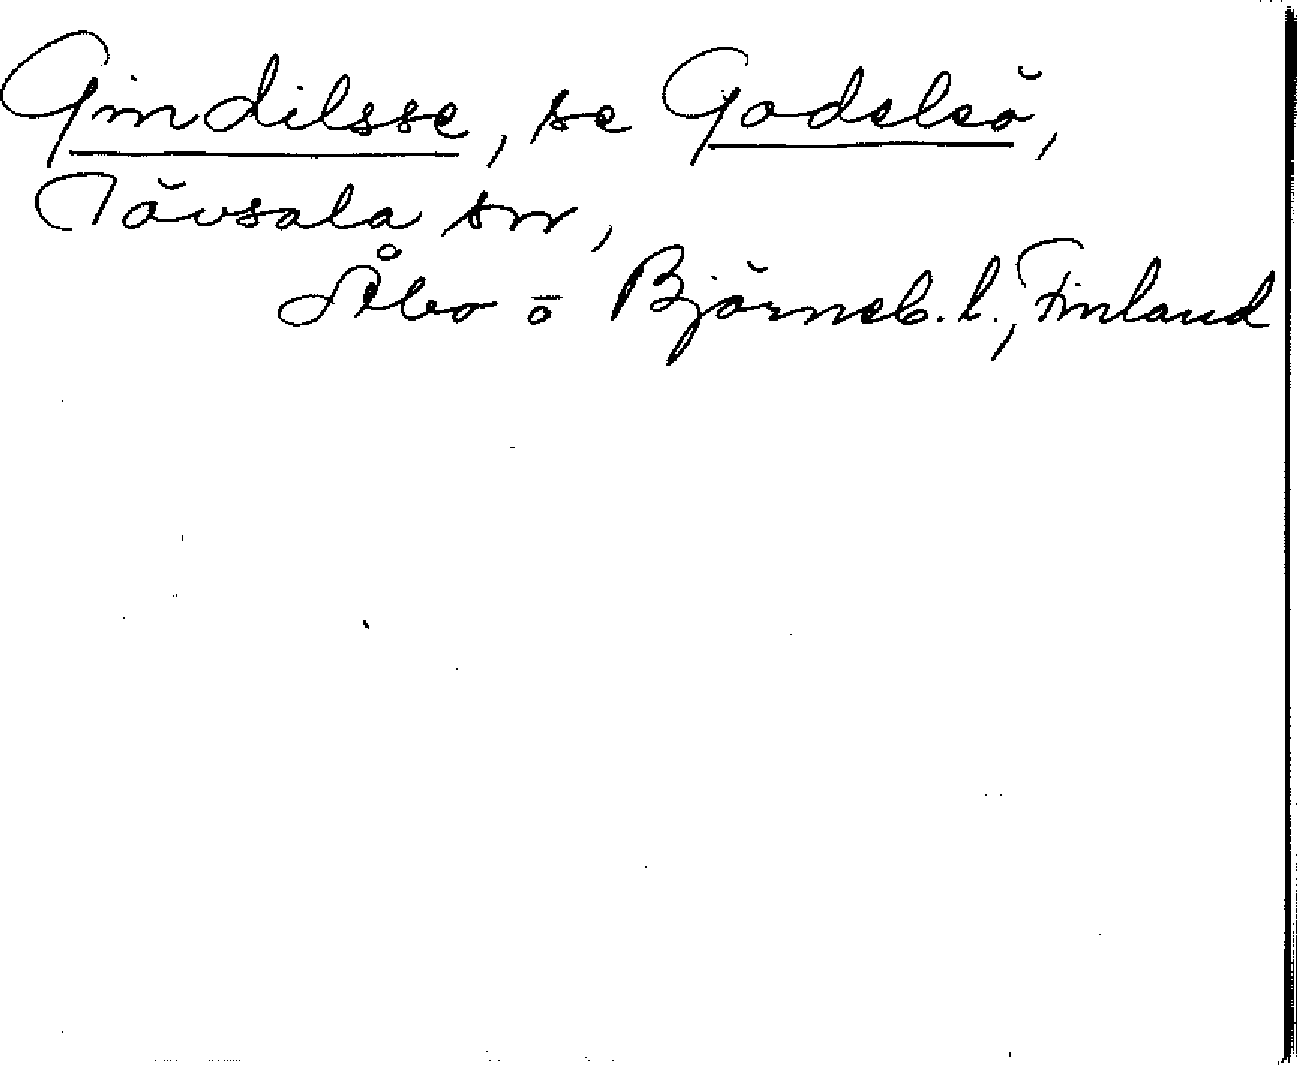 Gindilsse, se Godelsö,
Tövsala sn,
Åbo o Björneb. l., Finland